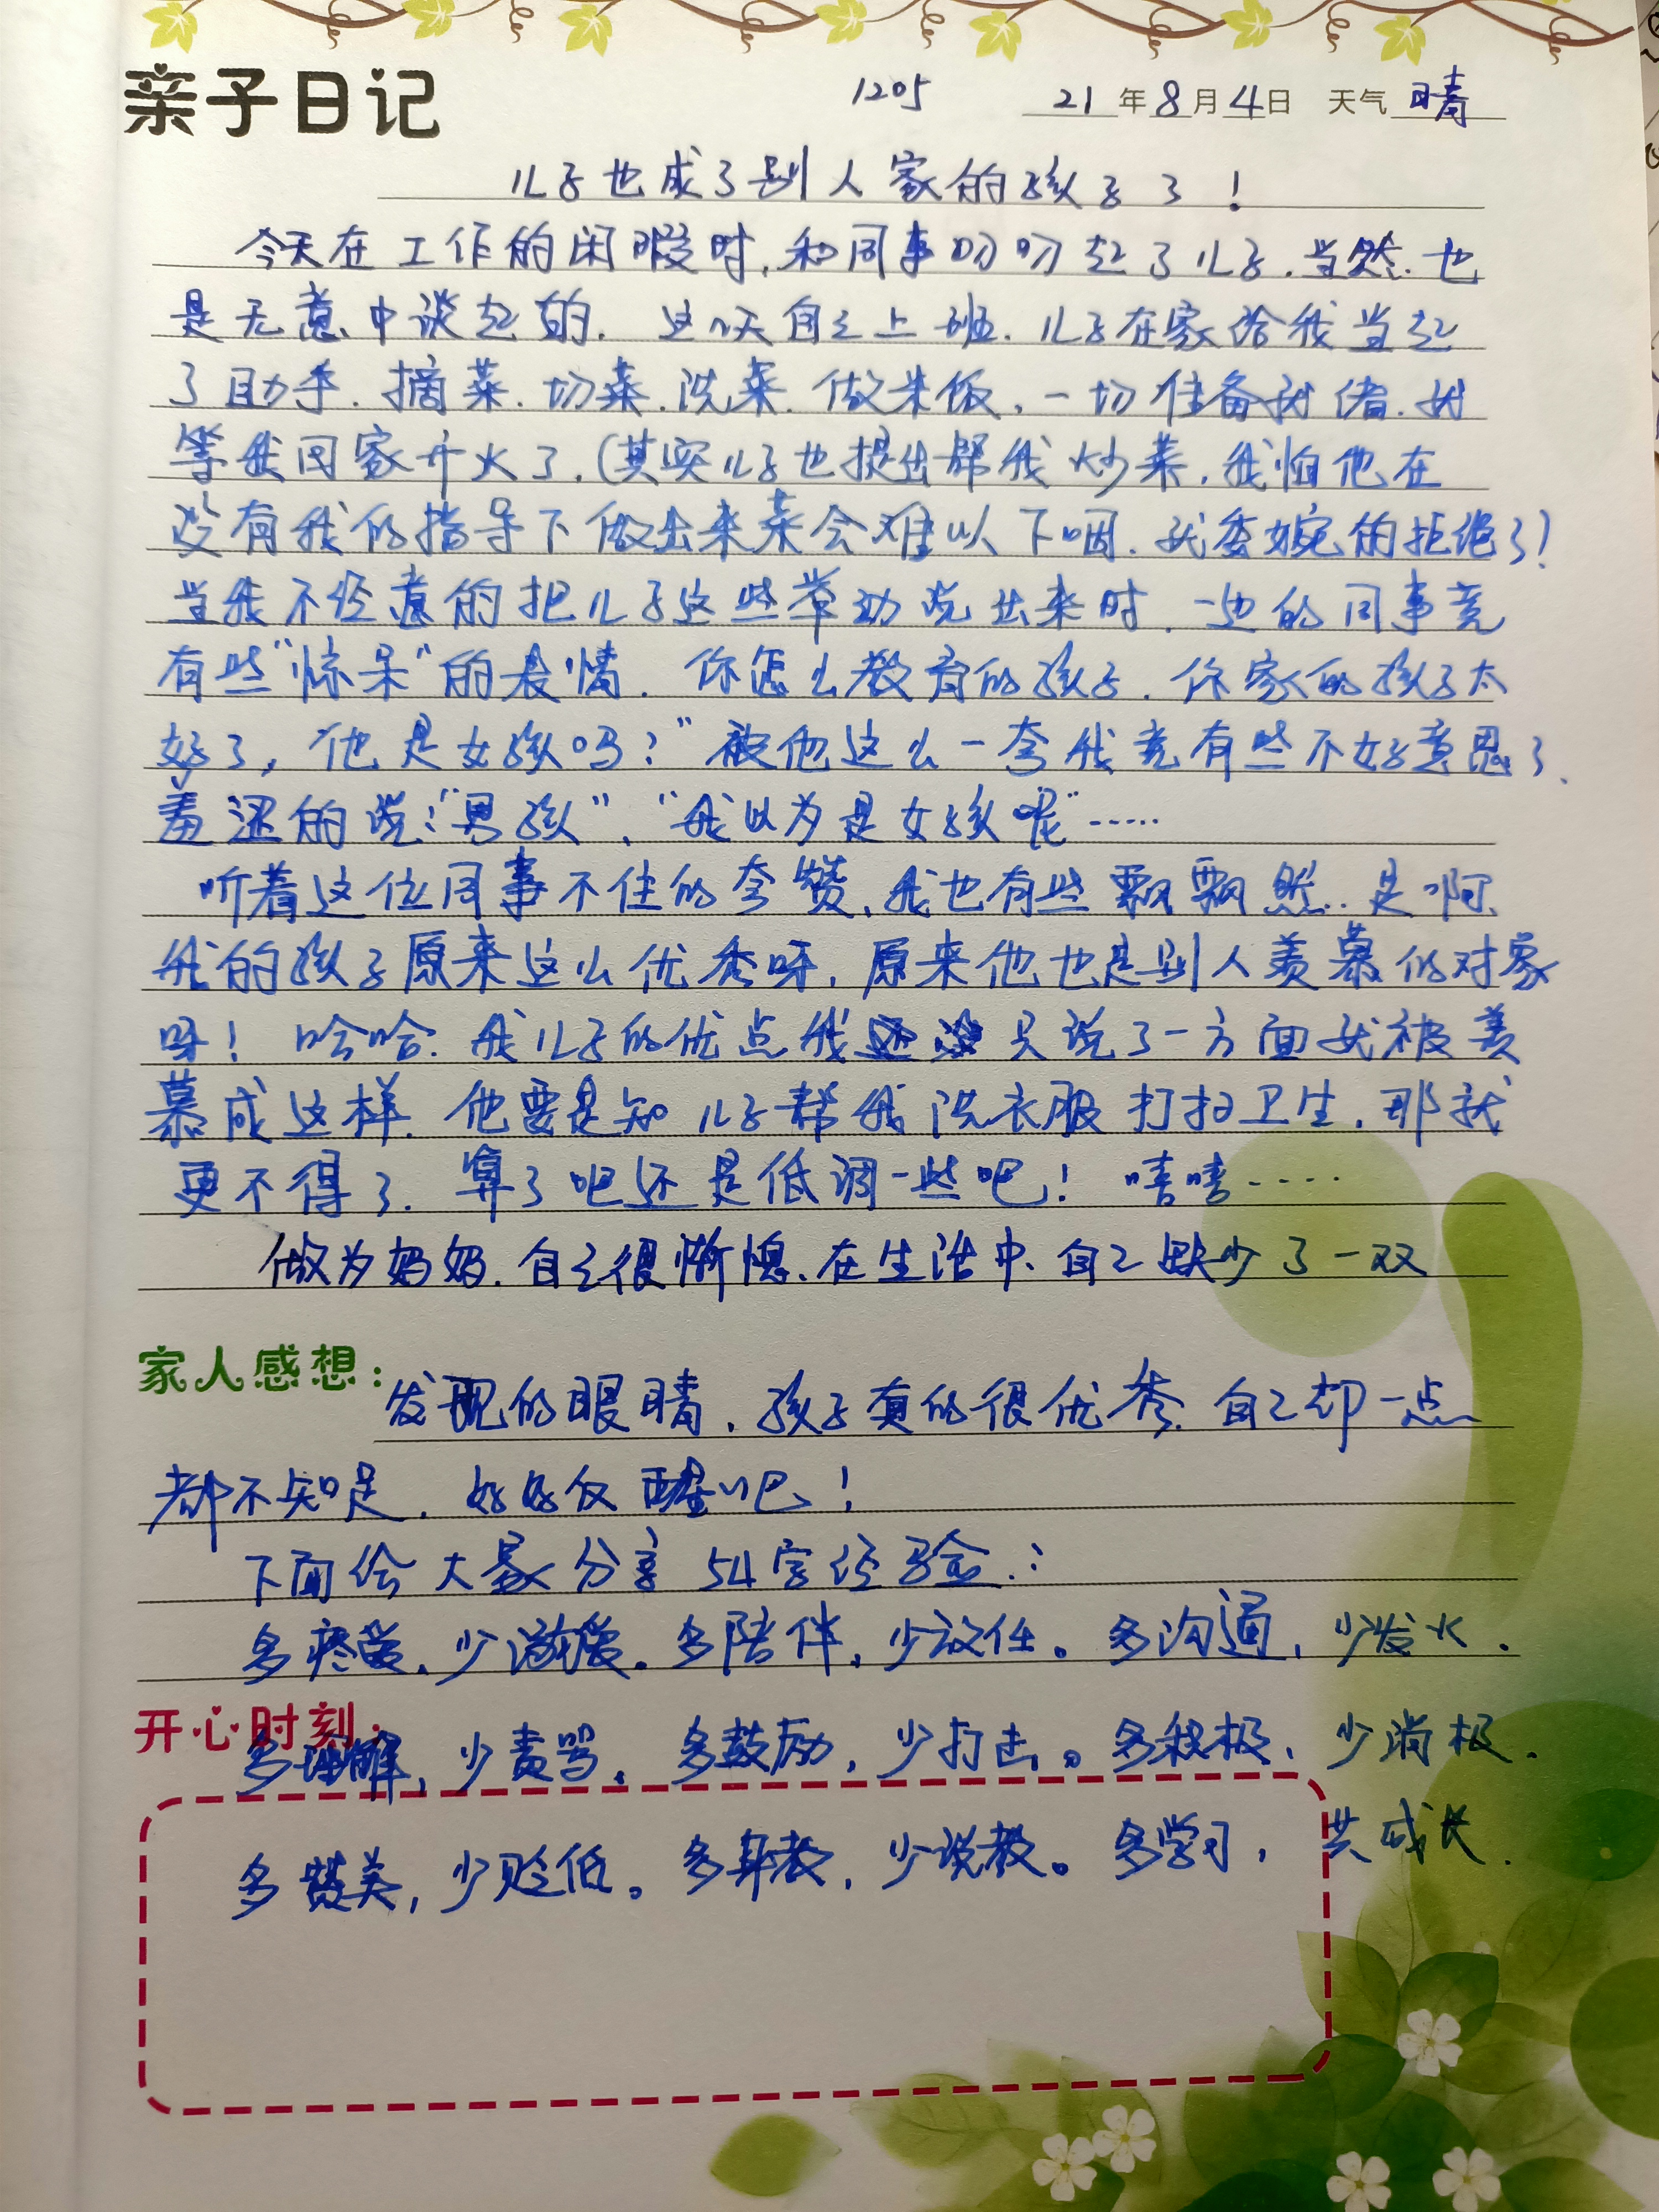 亲子日记 1205 21年8月4日 天气 晴
儿子也成了别人家的孩子了!
今天在工作的闲暇时,和同事叨叨起了儿子.当然.也
是无意中谈起的. 这几天自己上班.儿子在家给我当起
了助手.摘菜.切菜.洗菜.做米饭,一切准备就绪.就
等我回家开火了,(其实儿子也提出帮我炒菜,我怕他在
没有我的指导下做出来菜会难以下咽.就委婉的拒绝了)
当我不经意的把儿子这些举动说出来时.一边的同事竟
有些“惊呆”的表情. 你怎么教育的孩子.你家的孩子太
好了,他是女孩吗?”被他这么一夸我竟有些不好意思了.
羞涩的说:“男孩”、“我以为是女孩呢”……
听着这位同事不住的夸赞、我也有些飘飘然.是啊
我的孩子原来这么优秀呀,原来他也是别人羡慕的对象
呀! 哈哈.我儿子的优点我只说了一方面就被羡
慕成这样.他要是知儿子帮我洗衣服打扫卫生.那就
更不得了.算了吧还是低调一些吧! 嘻嘻……
做为妈妈.自己很惭愧、在生活中、自己缺少了一双
家人感想:发现的眼睛.孩子真的很优秀.自己却一点
都不知足.好好反醒吧!
下面给大家分享54字经验:
多疼爱,少溺爱。多陪伴,少放任。多沟通,少发火.
开心时刻:
多理解,少责骂。多鼓励,少打击。多积极、少消极.
多赞美,少贬低。多身教,少说教。多学习,共成长.